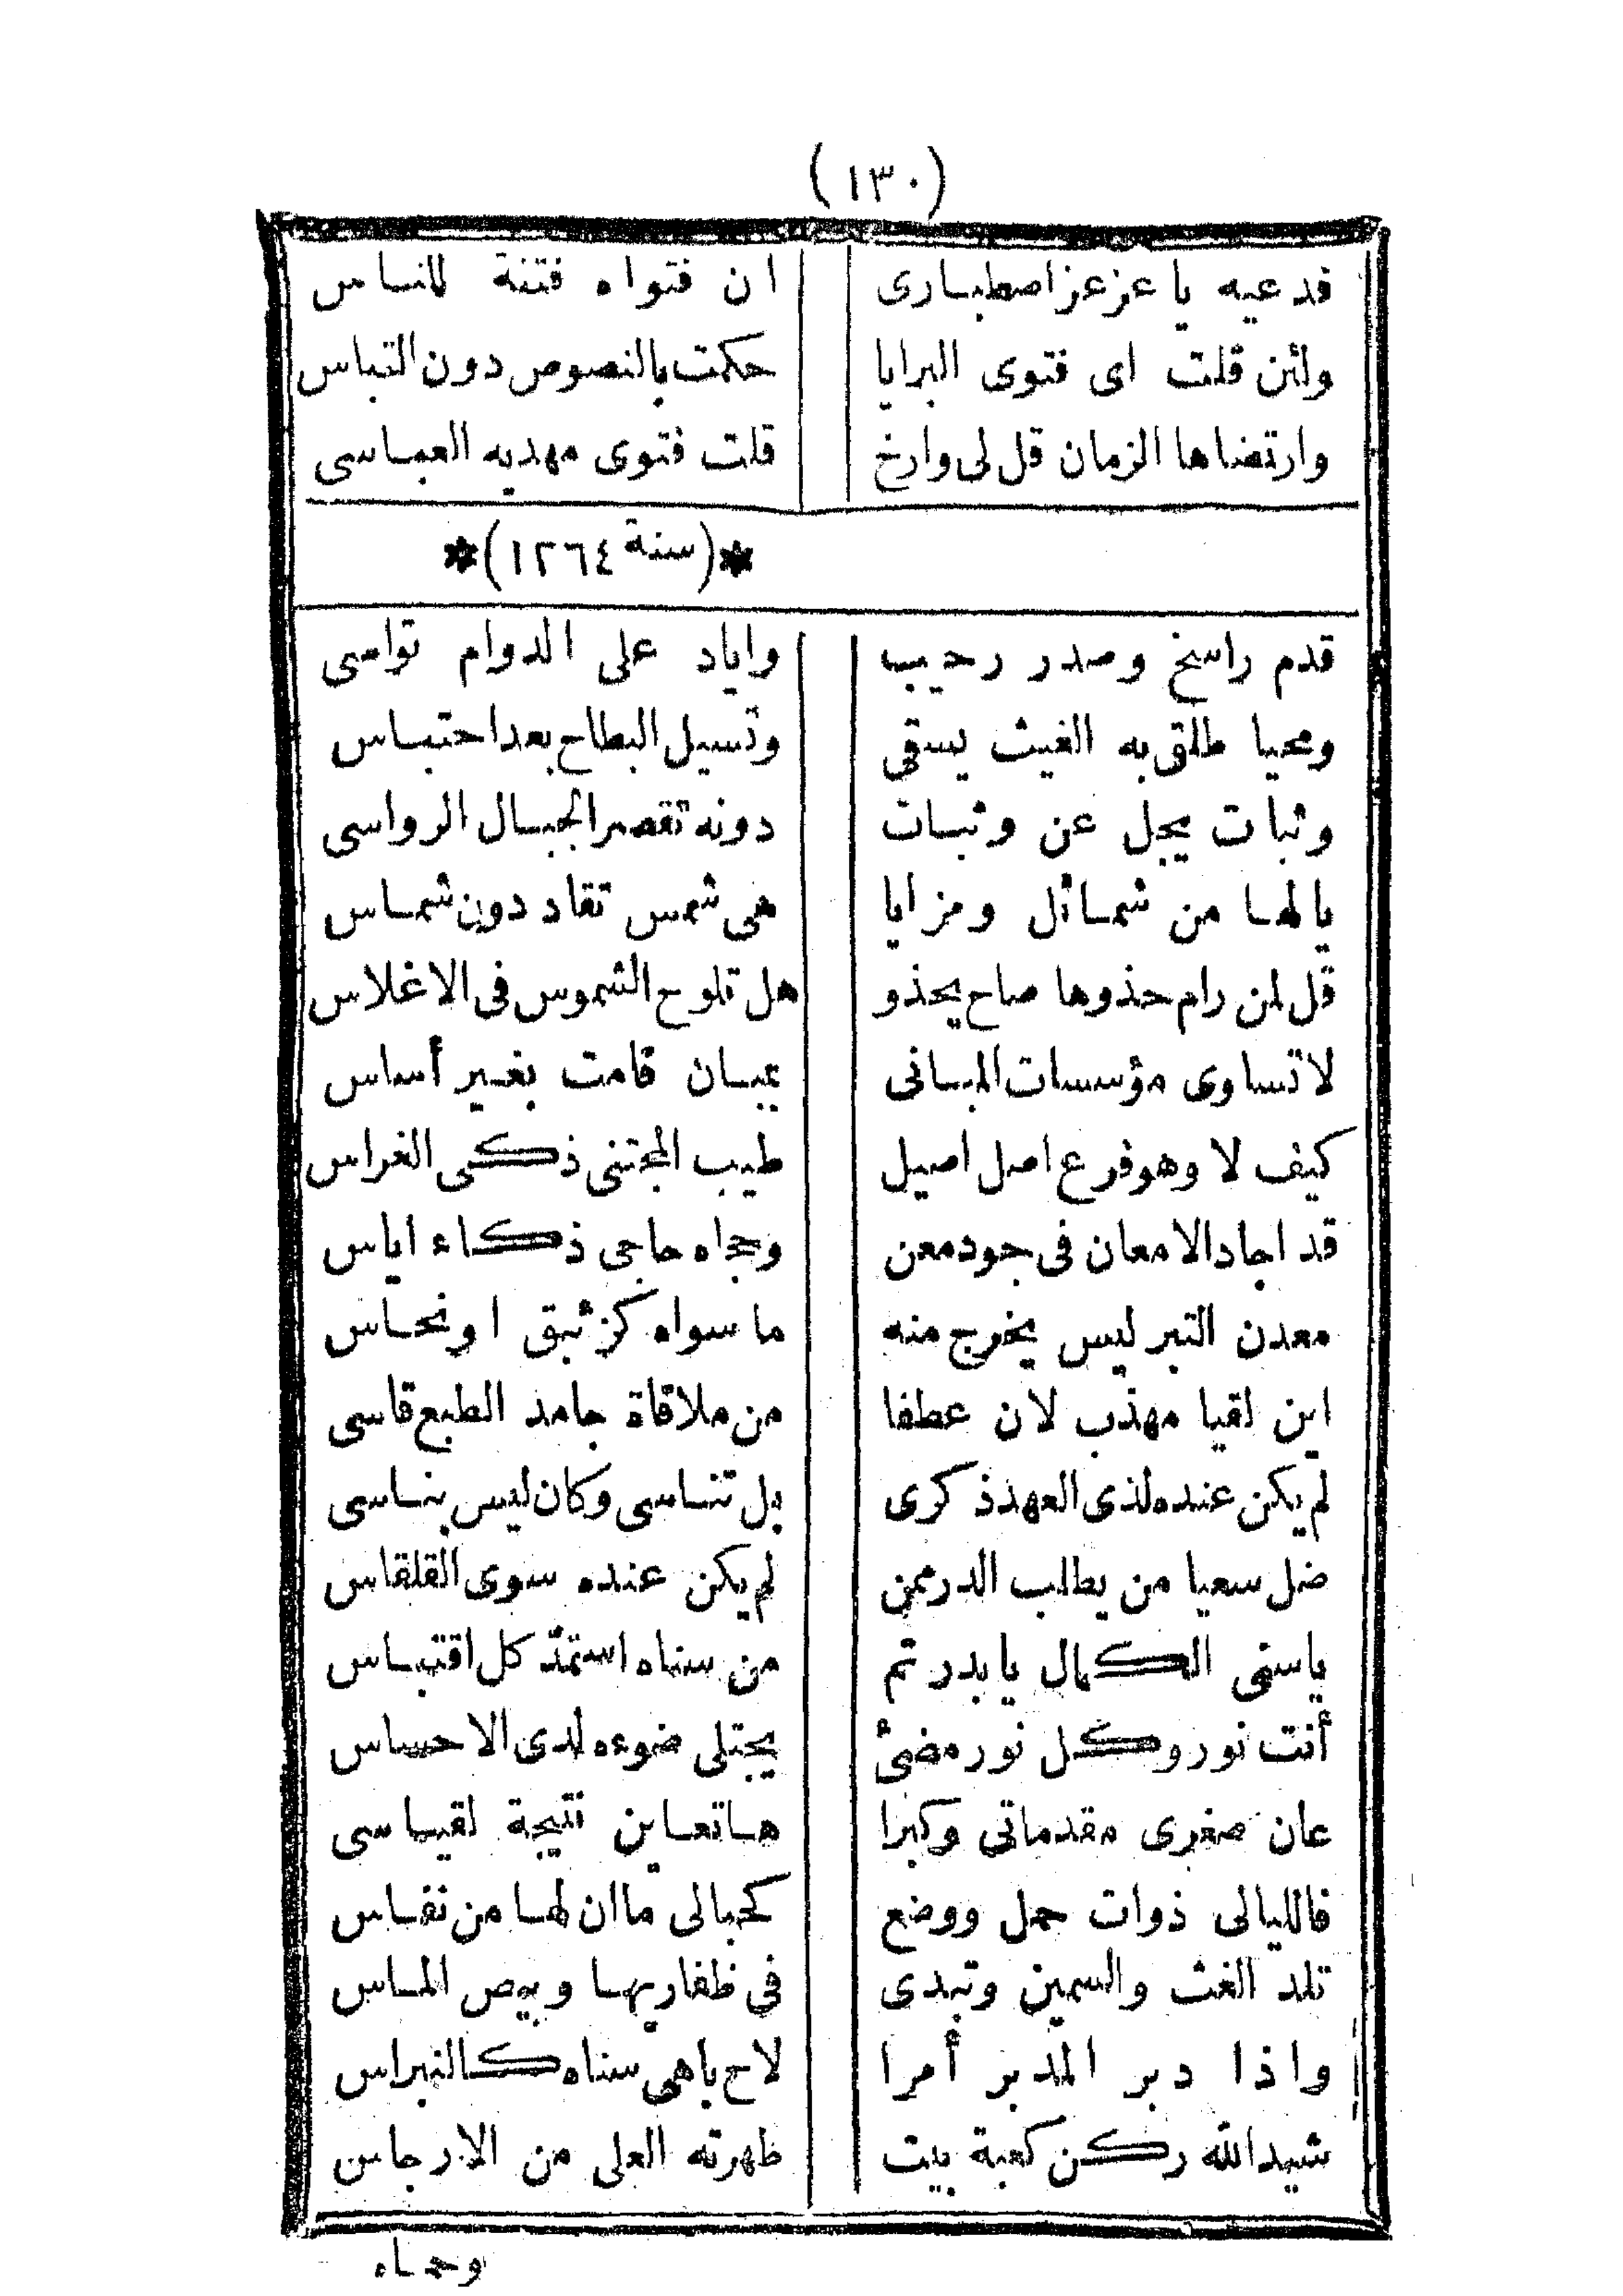 (١٣٠)
فدعيه يا عز عز اصطبارى ان فتواه فتنة للناس
ولئن قلت اى فتوى البرايا حكمت بالنصوص دون التباس
وارتضاها الزمان قل لى وارخ قلت فتوى مهديه العباسى
*(سنة ١٢٦٤)*
قدم راسخ وصدر رحيب واياد على الدوام تواسى
ومحيا طلق به الغيث يسقى وتسيل البطاح بعد احتباس
وثبات يجل عن وثبات دونه تقصر الجبال الرواسى
يالها من شمائل ومزايا هى شمس تقاد دون شماس
قل لمن رام حذوها صاح يحذو هل تلوح الشموس فى الاغلاس
لا تساوى مؤسسات المبانى بمبان قامت بغير أساس
كيف لا وهو فرع اصل اصيل طيب المجتنى ذكى الغراس
قد اجاد الامعان فى جود معن وحجاه حاجى ذكاء اياس
معدن التبر ليس يخرج منه ما سواه كزئبق او نحاس
اين لقيا مهذب لان عطفا من ملاقاة جامد الطبع قاسى
لم يكن عنده لذى العهد ذكرى بل تناسى وكان ليس بناسى
ضل سعيا من يطلب الدر ممن لم يكن عنده سوى القلقاس
ياسنى الكمال يا بدر تم من سناه استمدّ كل اقتباس
أنت نور وكل نور مضئ يجتلى ضوءه لدى الاحساس
عان صغرى مقدماتى وكبرا هاتعاين نتيجة لقياسى
فالليالى ذوات حمل ووضع كحبالى ماان لها من نفاس
تلد الغث والسمين وتبدى فى ظفاريها وبيص الماس
واذا دبر المدبر أمرا لاح باهى سناه كالنبراس
شيد الله ركن كعبة بيت ظهرته العلى من الارجاس
وحماه